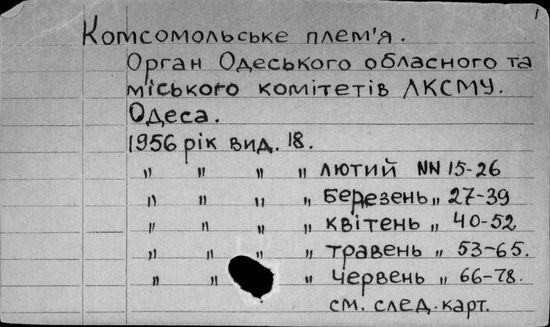 1
Комсомольське плем'я.
Орган Одеського обласного та
міського комітетів ЛКСМУ.
Одеса.
1956 рік вид. 18.
" " " " лютий NN 15-26
" " " " березень " 27-39
" " " " квітень " 40-52
" " " " травень " 53-65.
" " " " червень " 66-78.
см. след. карт.